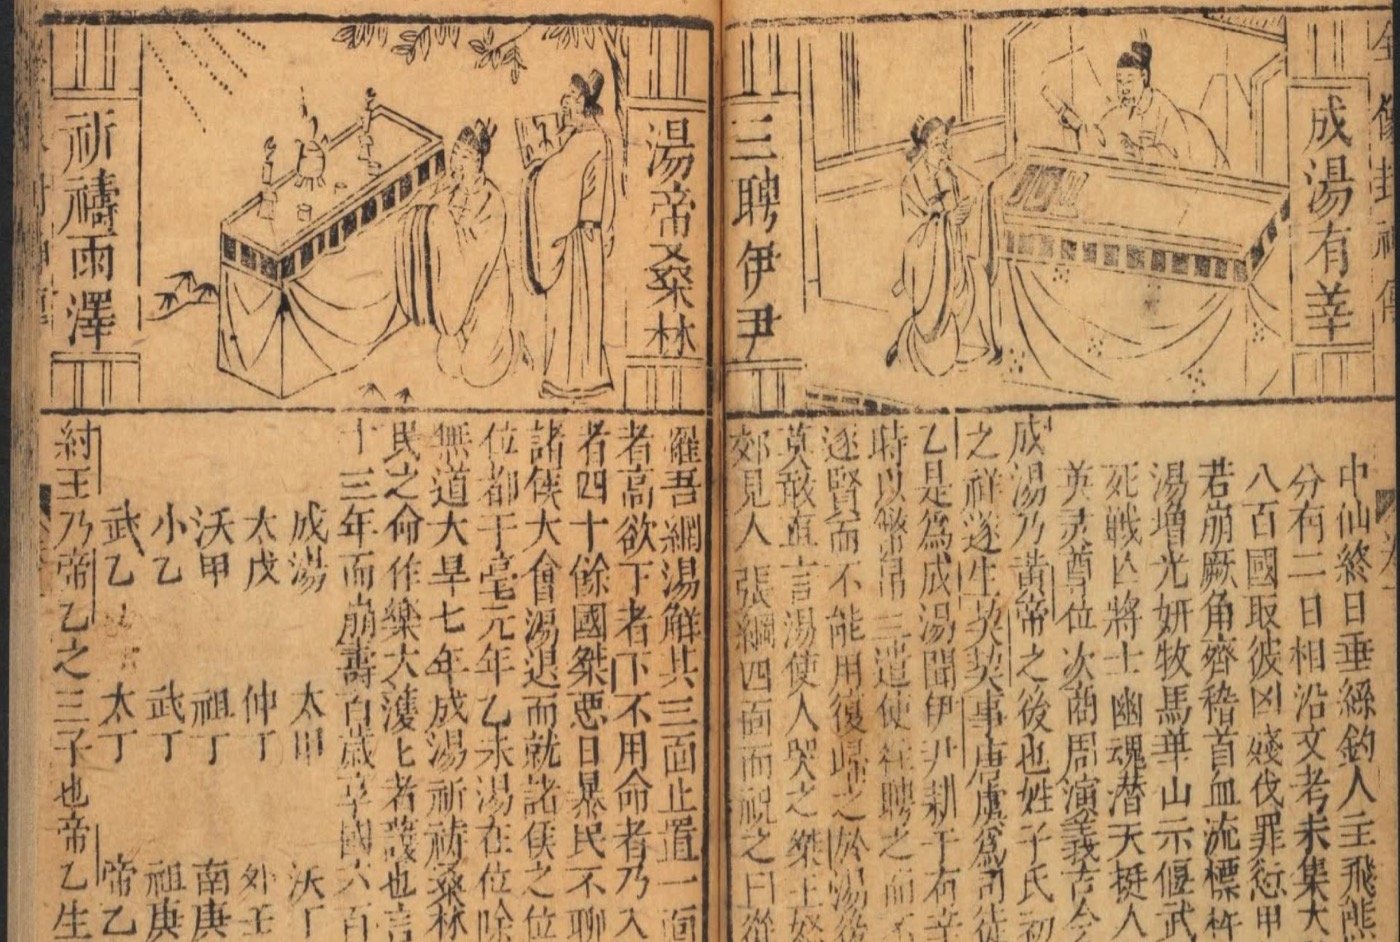 成湯有莘
三聘伊尹
中仙終日垂絲釣人主飛熊
分有二日相沿文考未集大
八百國取彼凶殘伐罪愆甲
若崩厥角齊稽首血流標杵
湯增光妍牧馬華山示偃武
死戰亡將士幽魂潜天挺人
英灵尊位次商周演義古今
成湯乃黃帝之後也姓子氏初
之祥遂生契契事唐虞爲司徒
乙是爲成湯聞伊尹耕于有莘
時以幣帛三遣使往聘之而不
逐賢而不能用復歸之於湯後
莫敢直言湯使人哭之桀王怒
郊見人張網四面而祝之曰從
湯帝桑林
祈禱雨澤
羅吾網湯解其三面止置一面
者高欲下者下不用命者乃入
者四十餘國桀惡日暴民不聊
諸侯大會湯退而就諸侯之位
位都于亳元年乙未湯在位除
無道大旱七年成湯祈禱桑林
民之命作樂大濩濩者護也言
十三年而崩壽百歲享國六百
成湯 太甲 沃丁
太戊 仲丁 外壬
沃甲 祖丁 南庚
小乙 武丁 祖庚
武乙 太丁 帝乙
紂王乃帝乙之三子也帝乙生